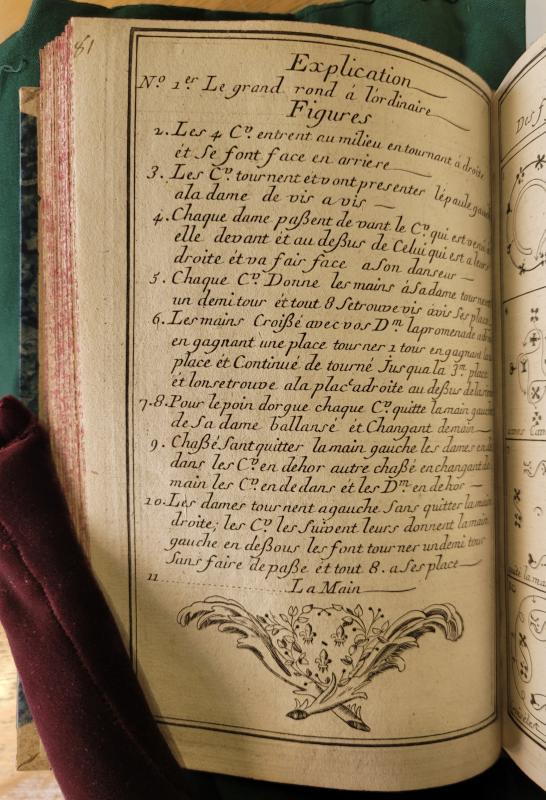 81
Explication
N.º 1.er Le grand rond á lórdinaire
Figures
2. Les 4 C.rs entrent au milieu en tournant á droite
ét Se font face en arriere
3. Les C.rs tournent et vont presenter lépaule gauche
ala dame de vis a vis
4. Chaque dame paßent de vant le C.r qui est venu
elle devant ét au deßus de Celui qui est a leur
droite ét va fair face a Son danseur
5. Chaque C.r Donne les mains á Sa dame tournent
un demi tour ét tout 8 Se trouve vis àvis Ses place
6. Les mains Croißé avec vos D.m la promenade
en gagnant une place tourner 1 tour en gagnant
place ét Continué de tourné Jusqua la 3.me place
ét lon se trouve ala place a droite au deßus de la
7.8. Pour le poin dorgue chaque C.r quitte la main gauche
de Sa dame ballansé ét Changant de main
9. Chaßé Sant quitter la main gauche lés dames en
dans les C.rs en déhor autre chaßé en changant de
main les C.rs en dedans ét lés D.m en de hor
10. Les dames tournent a gauche Sans quitter la main
droite, les C.rs les Suivent leurs donnent la main
gauche en deßous les font tourner un demi tour
Sans faire de paße ét tout 8. a Ses place
11 La Main
Des f